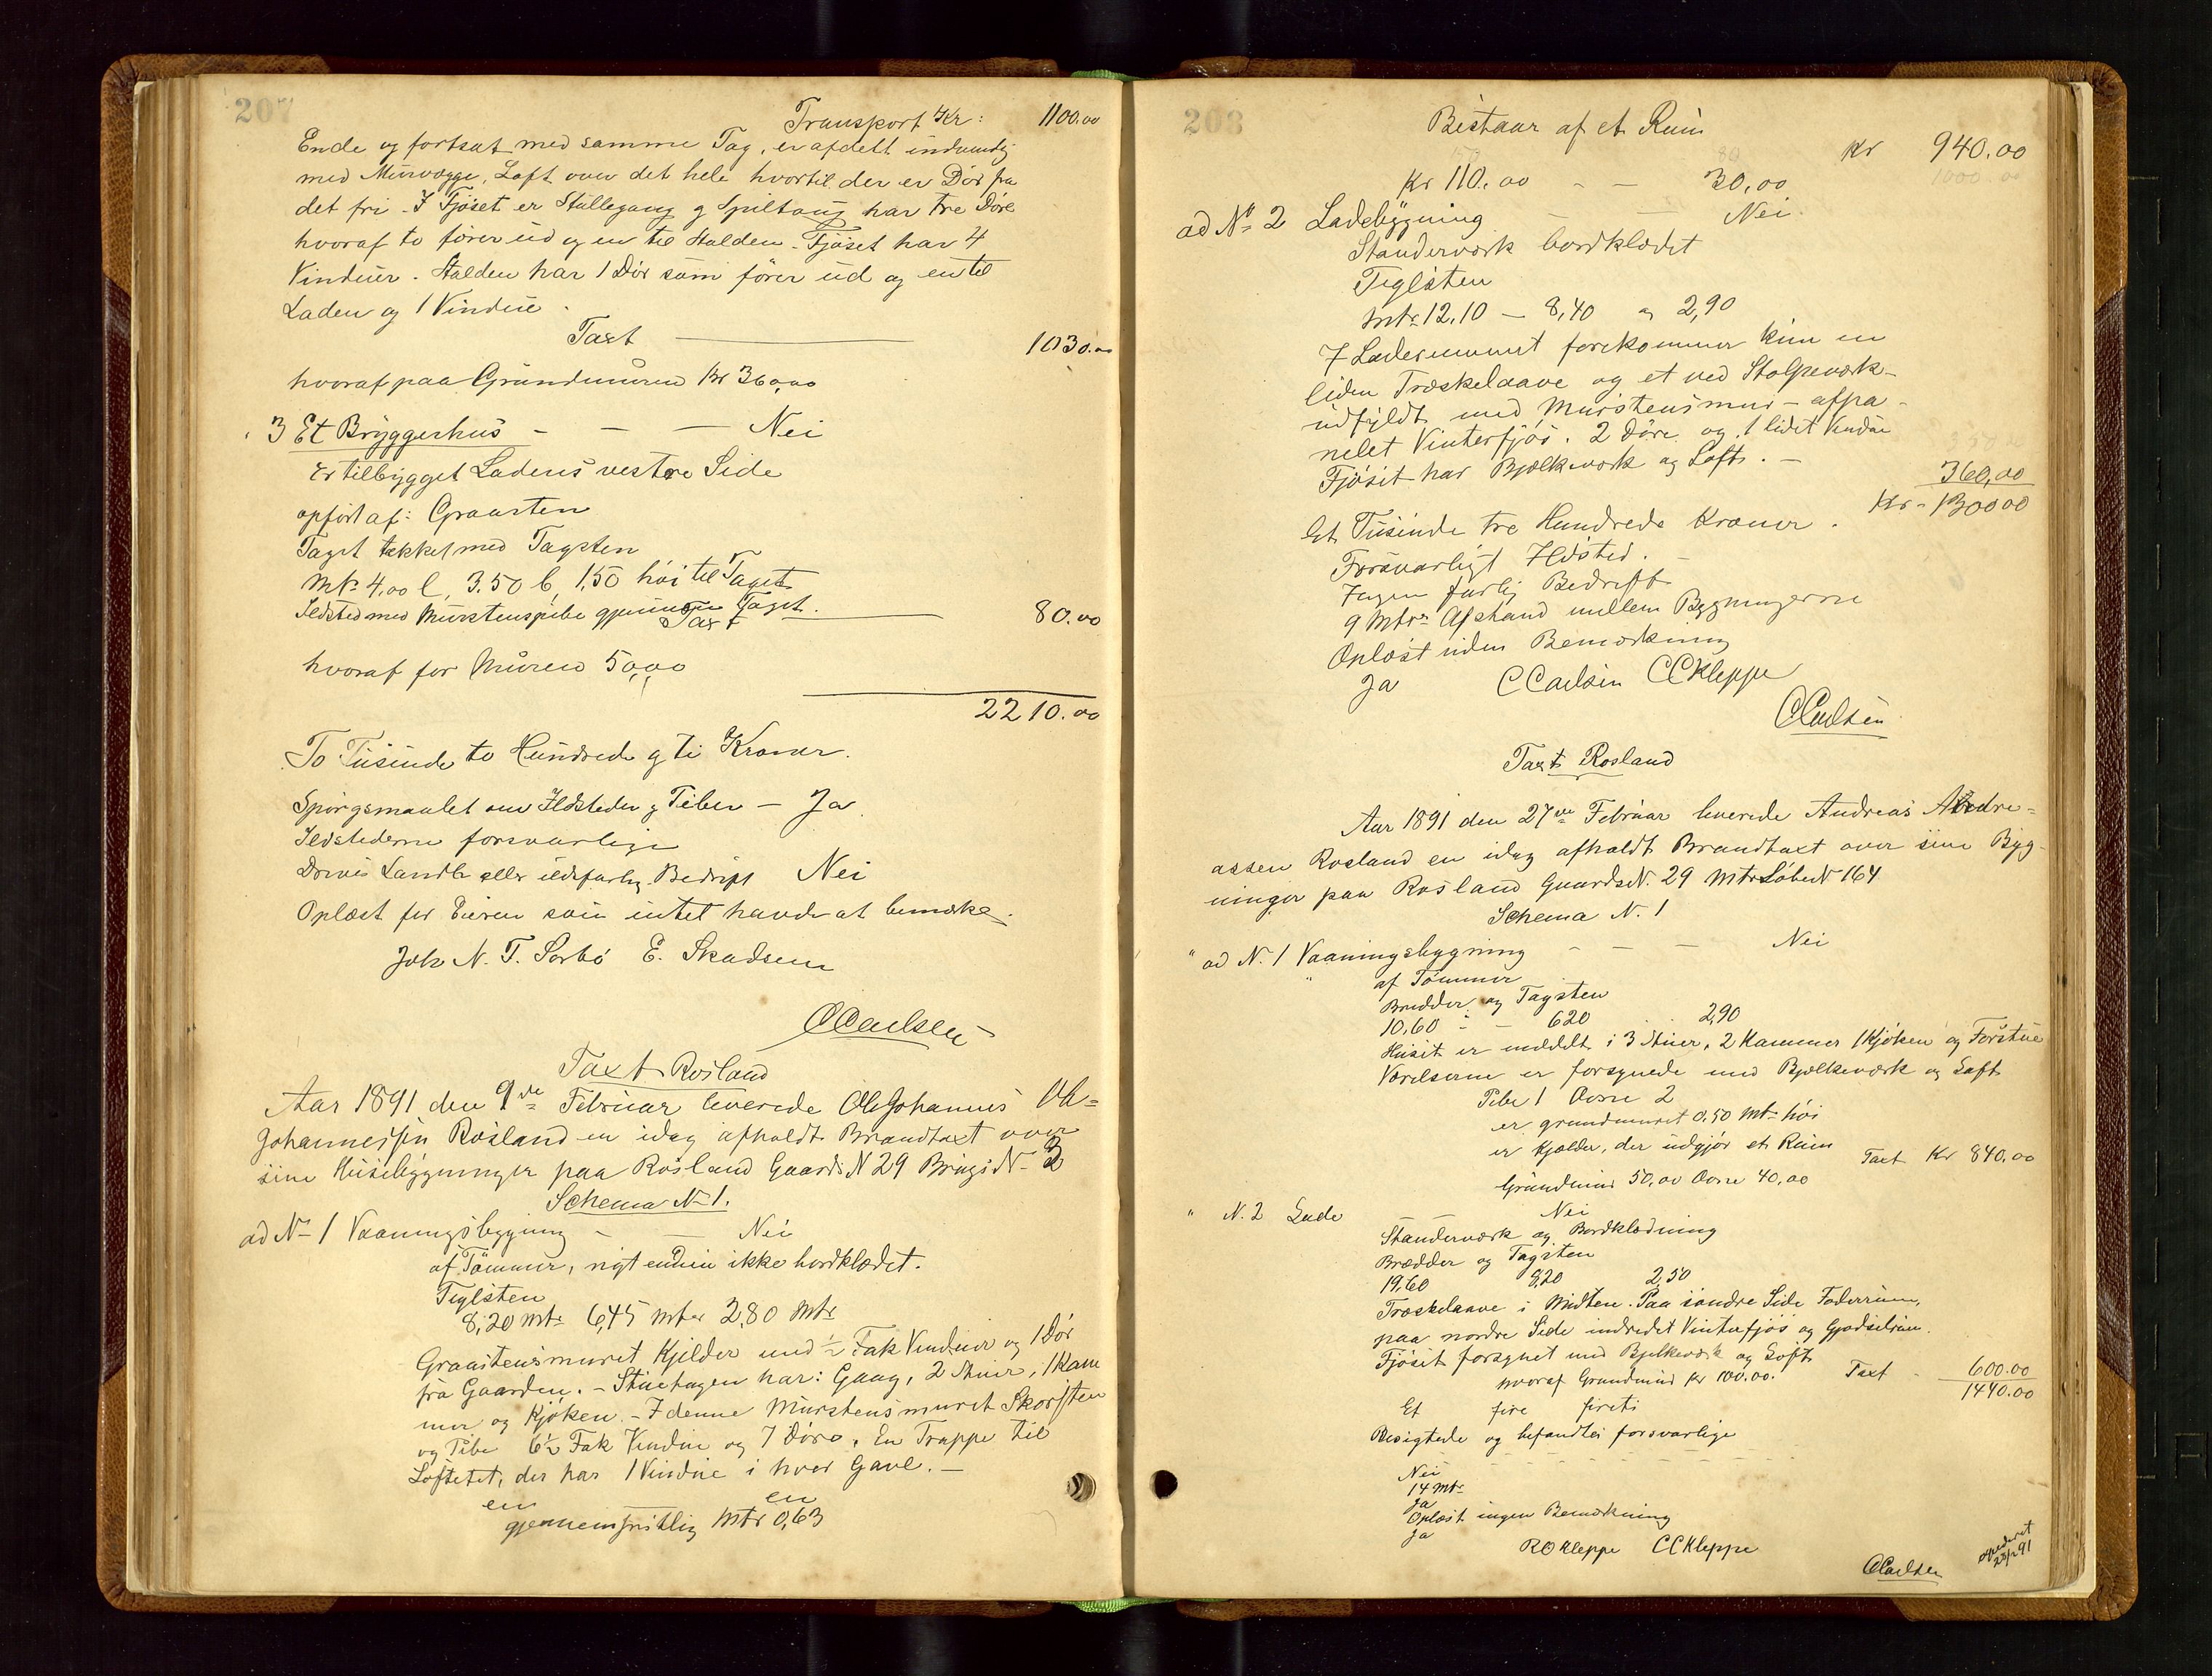 207
Transport Kr: 1100.00
Ende og fortsat med samme Tag, er afdelt indvendig
med Murvægge, Loft over det hele hvortil der er Dör fra
det fri. I Fjöset er Stillegang og Spiltoug har tre Döre
hvoraf to förer ud og en til Stalden. Fjöset har 4
Vinduer. Stalden har 1 Dör som förer ud og en til
Laden og 1 Vindue.
Taxt 1030.00
hvoraf paa Grundmuren Kr 360,00
3 Et Bryggerhus - - - Nei
Er tilbygget Ladens vestre Side
opfört af: Graasten
Taget tækket med Tagsten
Mtr 4,00 l, 3.50 b, 1,50 höi til Taget
Ildsted med Murstenspibe gjennem Taget.
Taxt 80.00
hvoraf for Muren 50,00
2210.00
To Tusinde to Hundrede og ti Kroner.
Spörgsmaalet om Ildsteder og Piber - Ja.
Ildstederne forsvarlige
Drives Landb eller ildsfarlig Bedrift Nei
Oplæst for Eieren som intet havde at bemærke.
Joh N. T. Sörbö E. Skadsem
CCarlsen
Taxt Rosland
Aar 1891 den 9de Februar leverede Ole Johannes Ol=
Johannessen Rosland en idag afholdt Brandtaxt over
sine Husebygninger paa Rosland Gaards N 29 Brugs N- 3
Schema N- 1.
ad N- 1 Vaaningsbygning - - Nei
af Tömmer, nyt endnu ikke bordklædet.
Teglsten
8,20 Mtr 6,45 Mtr 2,80 Mtr
Graastensmuret Kjelder med ½ Fak Vinduer og 1 Dör
fra Gaarden. - Stuetagen har: Gang, 2 Stuer, 1 Kam
mer og Kjöken. - I denne Murstensmuret Skorsten
og Pibe 6½ Fak Vindue og 7 Döre. En Trappe til
Loftetet, der har 1 Vindue i hver Gavl. -
en en
gjennemsnitlig Mtr 0,63
208
Bestaar af et Rum
Kr 940.00
Kr 110.00 - - 30,00
ad No 2 Ladebygning - - Nei.
Standerværk bordklædet
Teglsten
Mtr 12,10 - 8,40 og 2,90
I Laderummet forekommer kun en
liden Træskelaave og et ved Stolpeværk-
udfyldt med Murstensmur - afpa-
nelet Vinterfjös. 2 Döre og 1 lidet Vindue
Fjöset har Bjælkeværk og Loft. -
360,00
Kr - 1300 00
Et Tusinde tre Hundrede Kroner.
Forsvarligt Ildsted.
Ingen farlig Bedrift
9 Mtrs Afstand mellem Bygningerne
Oplæst uden Bemærkning
Ja CCarlsen CCKleppe
CCarlsen
Taxt Rosland
Aar 1891 den 27de Februar leverede Andreas Andre=
assen Rosland en idag afholdt Brandtaxt over sine Byg-
ninger paa Rosland Gaards N. 29 Mtr Löbe N 164
Schema N. 1
" ad N. 1 Vaaningsbygning - - - Nei
" af Tömmer
Brædder og Tagsten
10,60 - - 620 2,90
Huset er inddelt i 3 Stuer, 2 Kammer 1 Kjöken og Forstue
Værelserne er forsynede med Bjelkeværk og Loft
Pibe 1 Ovne 2
er grundmuret 0,50 Mtr höi
er Kjelder, der udgjör et Rum
Taxt Kr 840.00
Grundmur 50,00 Ovne 40,00
" N. 2 Lade Nei
Standerværk og Bordklædning
Brædder og Tagsten
19,60 9,20 2,50
Træskelaave i Midten. Paa söndre Side Foderrum,
paa nordre Side indredet Vinterfjös og Gjödselrum.
Fjöset forsynet med Bjelkeværk og Loft
hvoraf Grundmur Kr 100.00. Taxt - 600.00
1440.00
Et fire firti
Besigtede og befandtes forsvarlige
Nei
14 Mtr
Ja
Oplæst ingen Bemærkning
Ja
ROKleppe CCKleppe
CCarlsen